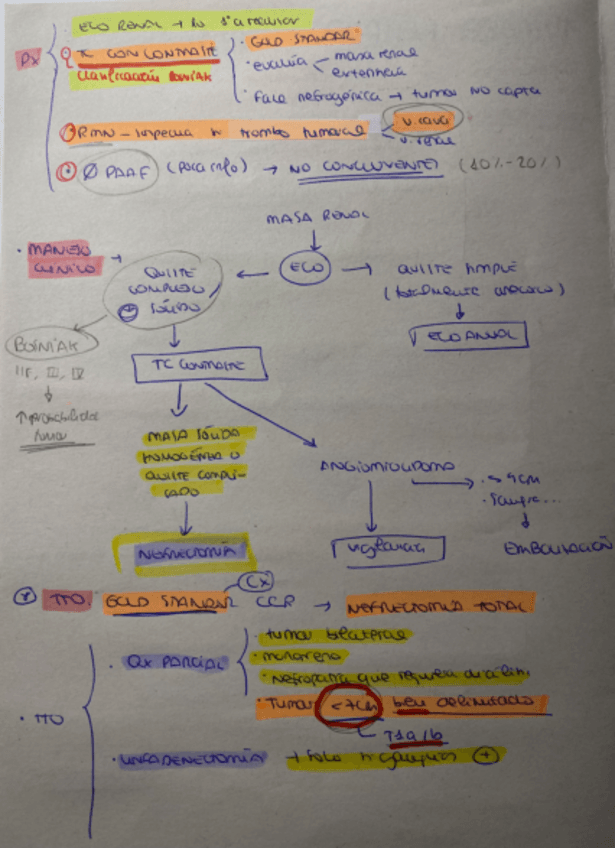 DX
ECO RENAL → lo 1º a realizar
TC CON CONTRASTE
Clasificación BOSNIAK
· GOLD STANDAR
· evalúa
masa renal
extensión
· Fase nefrogénica → tumor NO capta
RMN - sospecha tr trombo tumoral
v. cava
v. renal
Ø PAAF (poca info) → NO CONCLUYENTE (10%-20%)
MASA RENAL
· MANEJO CLÍNICO →
QUISTE COMPLEJO / SÓLIDO
← ECO →
QUISTE SIMPLE
(totalmente anecoico)
ECO ANUAL
BOSNIAK
IIF, III, IV
↑ probabilidad
tumor
TC CONTRASTE
MASA SÓLIDA
HOMOGÉNEA O
QUISTE COMPLI-
CADO
ANGIOMIOLIPOMA
· > 4CM
· Sangra...
NEFRECTOMÍA
Vigilancia
EMBOLIZACIÓN
CX
TTO. GOLD STANDAR CCR → NEFRECTOMIA TOTAL
· TTO
· QX PARCIAL
· tumor bilateral
· monorreno
· Nefropatía que requiera diálisis
· Tumor <7CM bien delimitado
T1a/b
· LINFADENECTOMÍA → solo si ganglios +